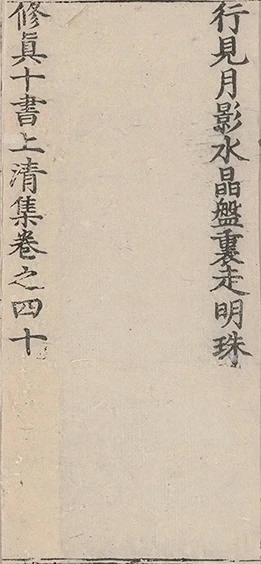 行見月影水晶盤裏走明珠
修真十書上清集卷之四十